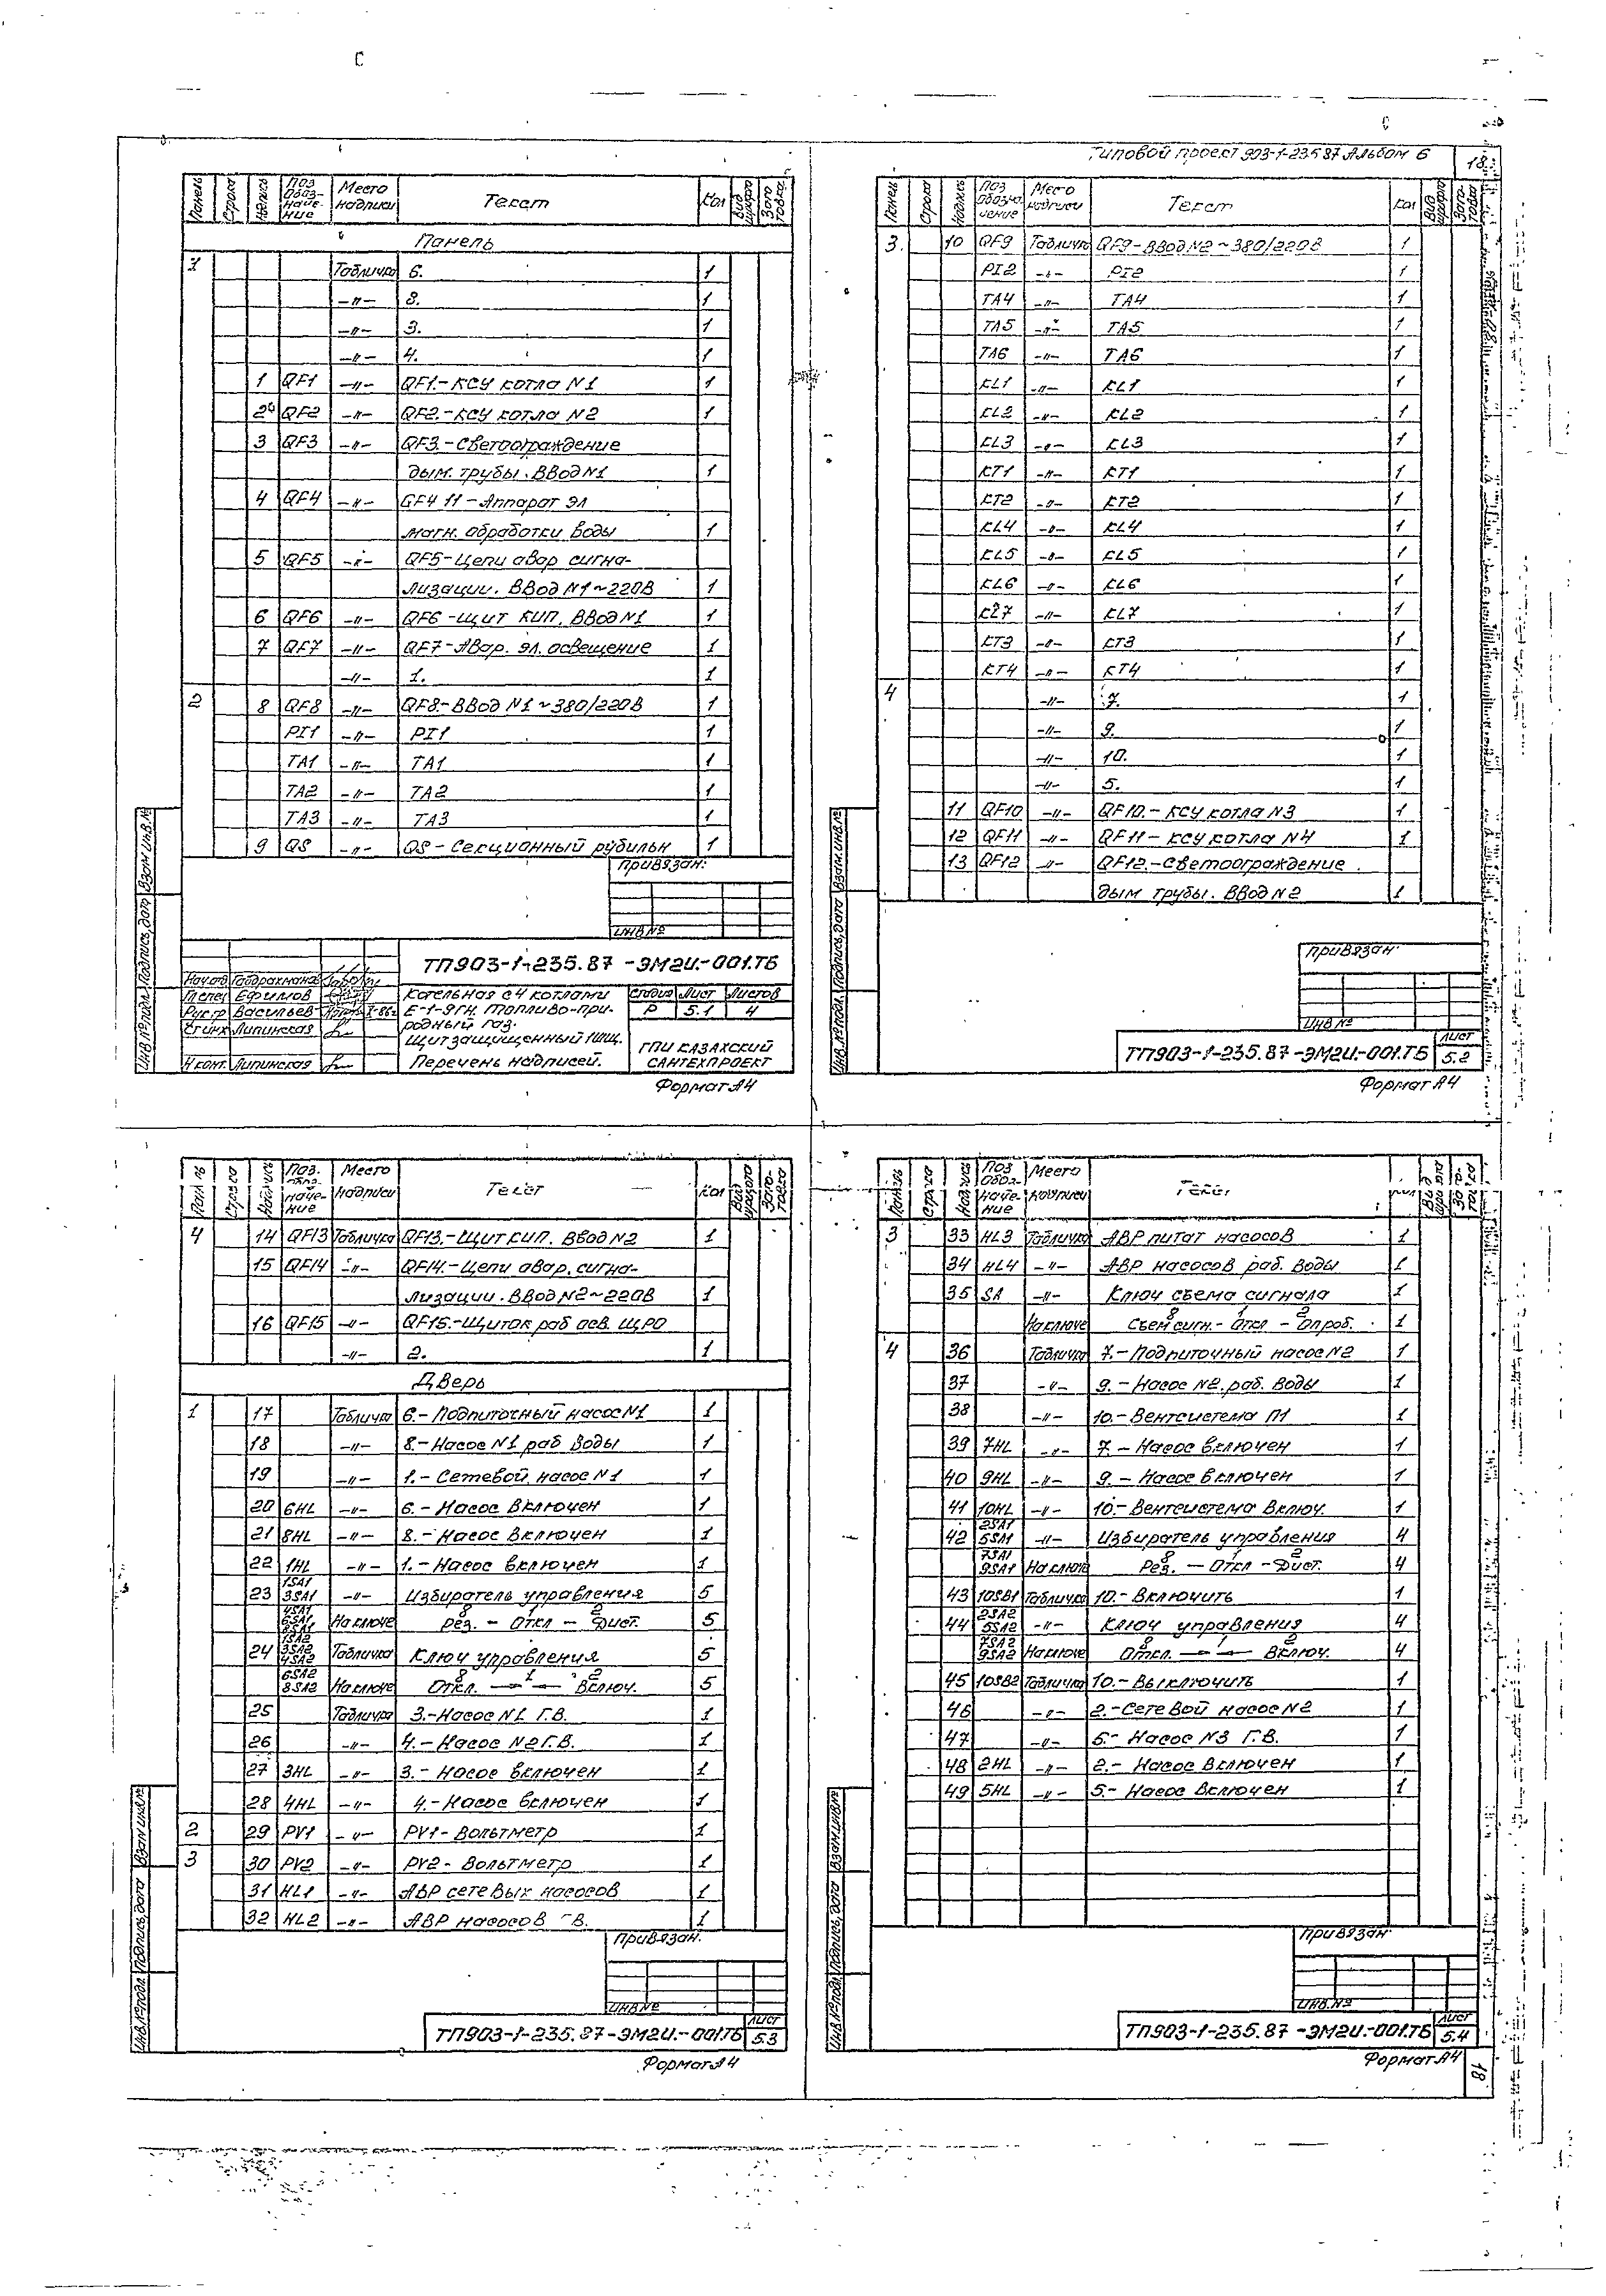 Типовой проект 903-1-235.87 Альбом 6 18
Панель Строка Надпись Поз. обозначение Место надписи Текст Кол Вид шрифта Заготовка
Панель
1 Табличка 6. 1
-"- 8. 1
-"- 3. 1
-"- 4. 1
1 QF1 -"- QF1.-КСУ котла N1 1
2 QF2 -"- QF2.-КСУ котла N2 1
3 QF3 -"- QF3.-Светоограждение
дым. трубы. Ввод N1 1
4 QF4 -"- QF4 11-Аппарат эл
магн. обработки воды 1
5 QF5 -"- QF5-Цепи авар сигна-
лизации. Ввод N1~220В 1
6 QF6 -"- QF6-Щит КИП. Ввод N1 1
7 QF7 -"- QF7-Авар. эл. освещение 1
-"- 1. 1
2 8 QF8 -"- QF8.-Ввод N1~380/220В 1
PI1 -"- PI1 1
TA1 -"- TA1 1
TA2 -"- TA2 1
TA3 -"- TA3 1
9 QS -"- QS-Секционный рубильн 1
Привязан:
Инв №
ТП903-1-235.87-ЭМ2И.-001.ТБ
Котельная с 4 котлами
Е-1-9ГН. Топливо-при-
родный газ.
Щит защищенный 1ШЩ.
Перечень надписей.
Стадия Лист Листов
Р 5.1 4
ГПИ КАЗАХСКИЙ
САНТЕХПРОЕКТ
Нач.отд
Гл спец Ефимов
Рук гр Васильев
Ст инж Липинская
Н конт. Липинская
Инв № подл. Подпись, дата Взам инв.№
Формат А4
Панель Строка Надпись Поз обозначение Место надписи Текст Кол Вид шрифта Заготовка
3. 10 QF9 Табличка QF9-Ввод N2~380/220В 1
PI2 -"- PI2 1
TA4 -"- TA4 1
TA5 -"- TA5 1
TA6 -"- TA6 1
KL1 -"- KL1 1
KL2 -"- KL2 1
KL3 -"- KL3 1
KT1 -"- KT1 1
KT2 -"- KT2 1
KL4 -"- KL4 1
KL5 -"- KL5 1
KL6 -"- KL6 1
KL7 -"- KL7 1
KT3 -"- KT3 1
KT4 -"- KT4 1
4 -"- 7. 1
-"- 9. 1
-"- 10. 1
-"- 5. 1
11 QF10 -"- QF10.-КСУ котла N3 1
12 QF11 -"- QF11-КСУ котла N4 1
13 QF12 -"- QF12.-Светоограждение
дым трубы. Ввод N2 1
Привязан:
Инв №
ТП903-1-235.87-ЭМ2И.-001.ТБ Лист 5.2
Инв. № подл. Подпись, дата Взам.инв.№
Формат А4
Панель Строка Надпись Поз. обозначение Место надписи Текст Кол Вид шрифта Заготовка
4 14 QF13 Табличка QF13.-Щит КИП. Ввод N2 1
15 QF14 -"- QF14.-Цепи авар. сигна-
лизации. Ввод N2~220В 1
16 QF15 -"- QF15.-Щиток раб осв. ЩРО
-"- 2. 1
Дверь
1 17 Табличка 6.-Подпиточный насос N1 1
18 -"- 8.-Насос N1 раб воды 1
19 -"- 1.-Сетевой насос N1 1
20 6HL -"- 6.-Насос включен 1
21 8HL -"- 8.-Насос включен 1
22 1HL -"- 1.-Насос включен 1
23 1SA1 3SA1 -"- Избиратель управления 5
4SA1 6SA1 8SA1 На ключе 8 1 2 Рез. - Откл - Дист. 5
24 1SA2 3SA2 4SA2 Табличка Ключ управления 5
6SA2 8SA2 На ключе 8 1 2 Откл. Включ. 5
25 Табличка 3.-Насос N1 Г.В. 1
26 -"- 4.-Насос N2 Г.В. 1
27 3HL -"- 3.-Насос включен 1
28 4HL -"- 4.-Насос включен 1
2 29 PV1 -"- PV1-Вольтметр 1
3 30 PV2 -"- PV2-Вольтметр 1
31 HL1 -"- АВР сетевых насосов 1
32 HL2 -"- АВР насосов ГВ. 1
Привязан:
Инв №
ТП903-1-235.87-ЭМ2И.-001.ТБ Лист 5.3
Инв.№ подл. Подпись, дата Взам инв.№
Формат А4
Панель Строка Надпись Поз обозначение Место надписи Текст Кол Вид шрифта Заготовка
3 33 HL3 Табличка АВР питат насосов 1
34 HL4 -"- АВР насосов раб. воды 1
35 SA -"- Ключ съема сигнала 1
На ключе 8 1 2 Съем сигн.-Откл-Опроб. 1
4 36 Табличка 7.-Подпиточный насос N2 1
37 -"- 9.-Насос N2. раб. воды 1
38 -"- 10.-Вентсистема П1 1
39 7HL -"- 7.-Насос включен 1
40 9HL -"- 9.-Насос включен 1
41 10HL -"- 10.-Вентсистема включ. 1
42 2SA1 5SA1 -"- Избиратель управления 4
7SA1 9SA1 На ключе 8 1 2 Рез. - Откл - Дист. 4
43 10SB1 Табличка 10.-Включить 1
44 2SA2 5SA2 -"- Ключ управления 4
7SA2 9SA2 На ключе 8 1 2 Откл. Включ. 4
45 10SB2 Табличка 10.-Выключить 1
46 -"- 2.-Сетевой насос N2 1
47 -"- 5.-Насос N3 Г.В. 1
48 2HL -"- 2.-Насос включен 1
49 5HL -"- 5.-Насос включен 1
Привязан:
Инв.№
ТП903-1-235.87-ЭМ2И.-001.ТБ Лист 5.4
Инв.№ подл. Подпись, дата Взам.инв№
Формат А4
18